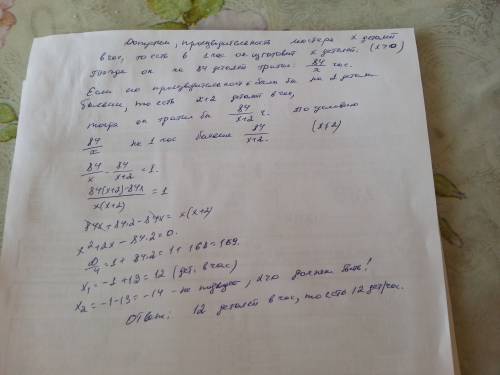 Допустим, производительность мастера x деталей
в час, то есть в 1 час он изготовит x деталей. (x>0)
Тогда он на 84 деталей тратит 84/x час.
Если но производительность была бы на 2 детали
больше, то есть x+2 деталей в час,
тогда он тратил бы 84/(x+2) ч. По условию
84/x на 1 час больше 84/(x+2).
84/x - 84/(x+2) = 1.
(84(x+2)-84x)/(x(x+2)) = 1
84x+84·2-84x = x(x+2)
x²+2x-84·2=0.
D/4=1+84·2=1+168=169.
x₁=-1+13=12 (дет. в час)
x₂=-1-13=-14 - не подходит, x>0 должен быть!
Ответ: 12 деталей в час, то есть 12 дет/час.